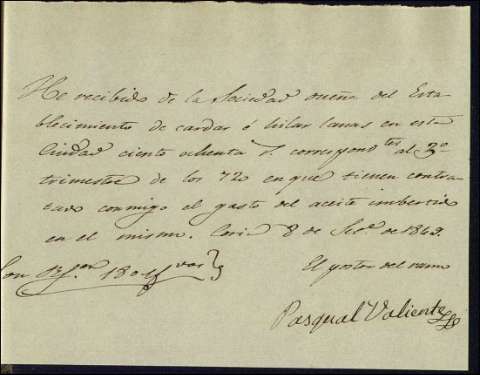 He recibido de la Sociedad dueña del Esta
blecimiento de cardar é hilar lanas en esta
Ciudad ciento ochenta r.s correspond.tes al 3º
trimestre de los 720 en que tienen contra
tado conmigo el gasto del aceite imbertido
en el mismo. Coria 8 de de 1843.
Son 180
El postor del ramo
Pasqual Valiente